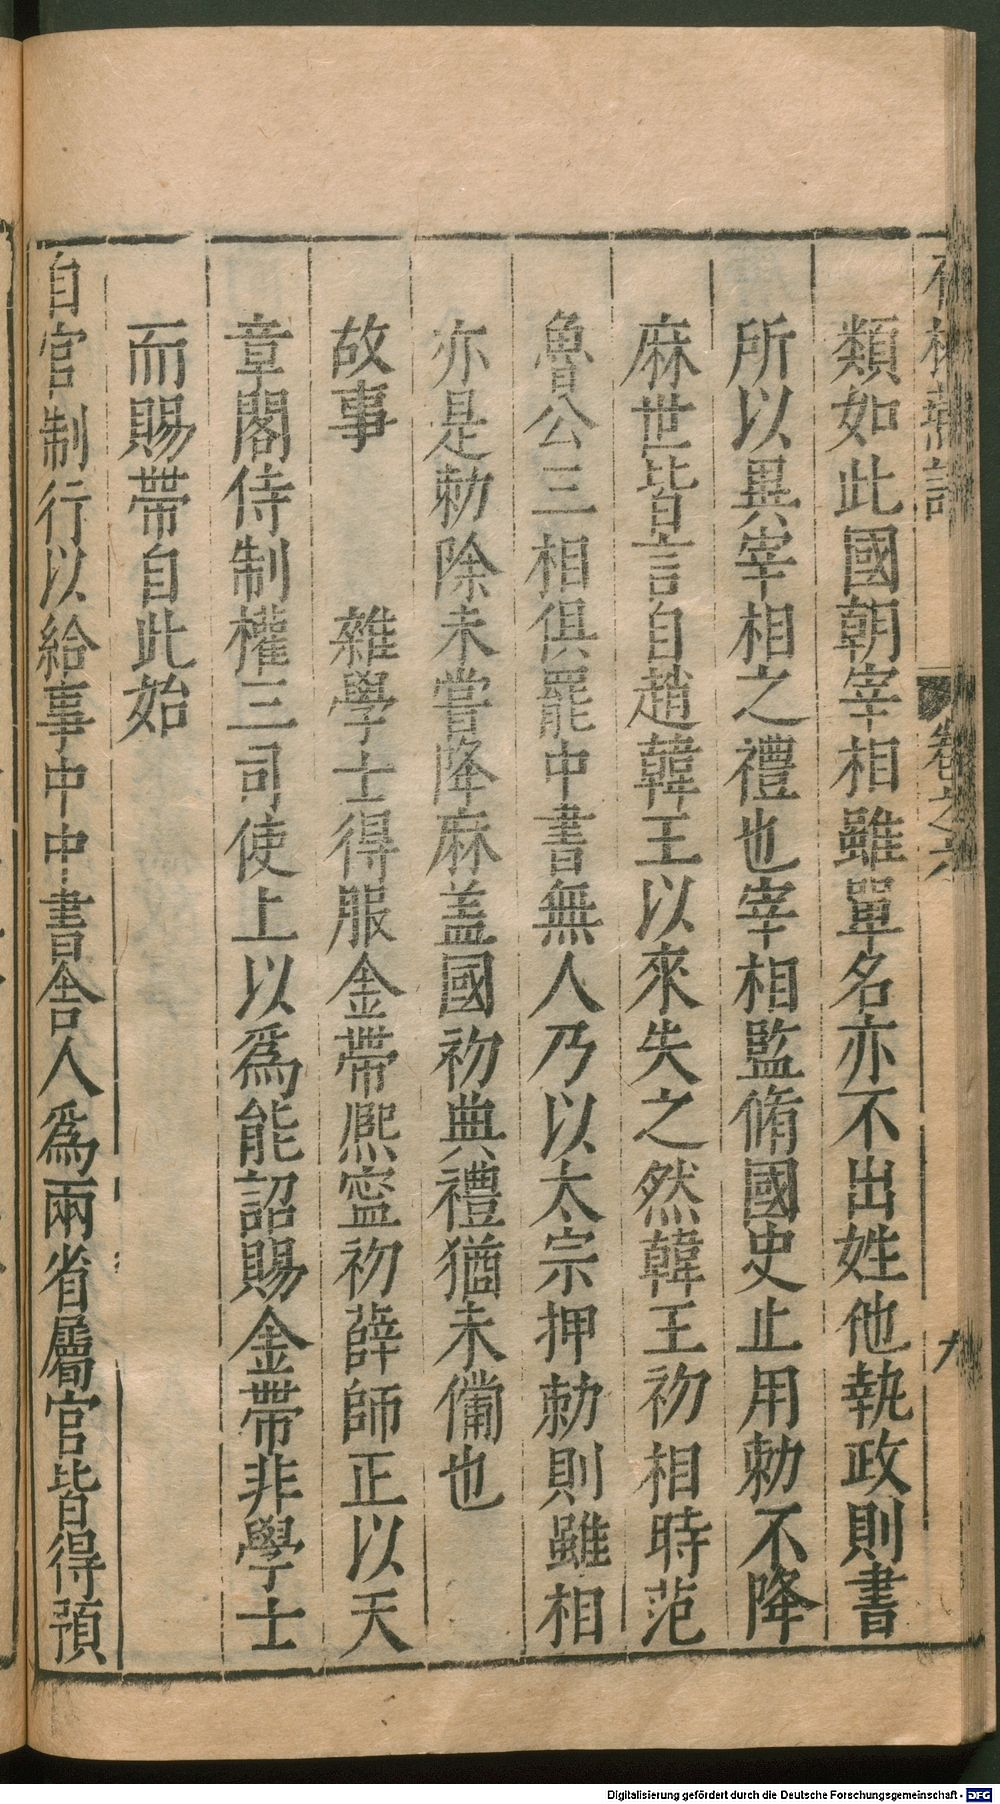 類如此國朝宰相雖單名亦不出姓他執政則書
所以異宰相之禮也宰相監脩國史止用勑不降
麻世皆言自趙韓王以來失之然韓王初相時范
魯公三相俱罷中書無人乃以太宗押勑則雖相
亦是勑除未嘗降麻蓋國初典禮猶未備也
故事　雜學士得服金帶熈寧初薛師正以天
章閣侍制權三司使上以爲能詔賜金帶非學士
而賜帶自此始
自官制行以給事中中書舍人爲兩省屬官皆得預
卷之六
Digitalisierung gefördert durch die Deutsche Forschungsgemeinschaft - DFG